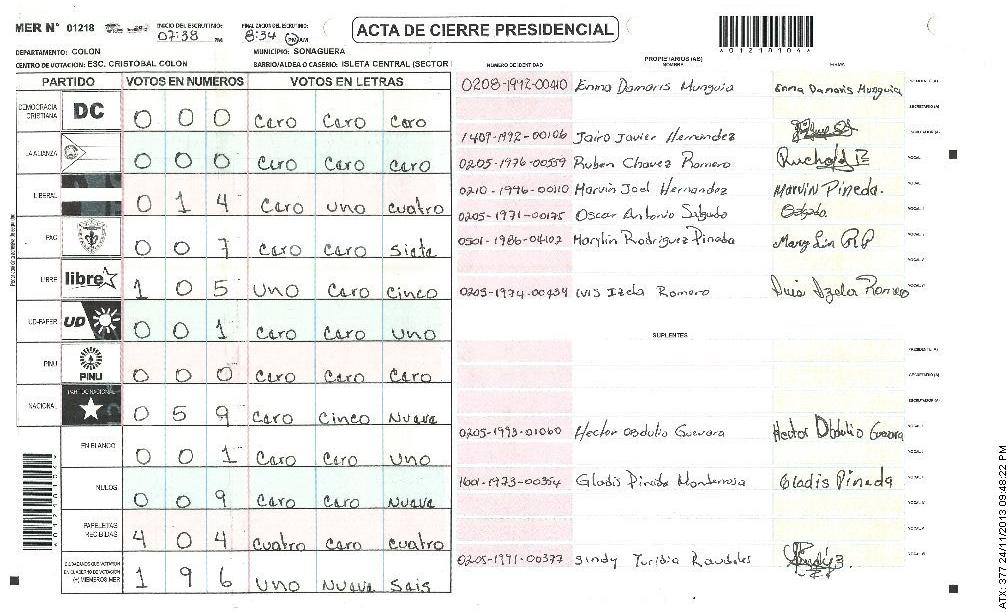 MER N° 01218 INICIO DEL ESCRUTINIO: 07:38 PM FINALIZACION DEL ESCRUTINIO: 8:34 PM AM
ACTA DE CIERRE PRESIDENCIAL
A01218104A
DEPARTAMENTO: COLON MUNICIPIO: SONAGUERA
CENTRO DE VOTACION: ESC. CRISTOBAL COLON BARRIO/ALDEA O CASERIO: ISLETA CENTRAL (SECTOR
PARTIDO VOTOS EN NUMEROS VOTOS EN LETRAS
DEMOCRACIA CRISTIANA DC 0 0 0 Cero Cero Cero
LA ALIANZA 0 0 0 Cero Cero Cero
LIBERAL 0 1 4 Cero uno cuatro
PAC 0 0 7 Cero Cero Siete
LIBRE libre 1 0 5 uno Cero Cinco
UD-FAPER UD 0 0 1 Cero Cero uno
PINU PINU 0 0 0 Cero Cero Cero
NACIONAL PARTIDO NACIONAL 0 5 9 Cero Cinco Nueve
EN BLANCO 0 0 1 Cero Cero uno
NULOS 0 0 9 Cero Cero Nueve
PAPELETAS RECIBIDAS 4 0 4 Cuatro Cero Cuatro
CIUDADANOS QUE VOTARON EN CUADERNO DE VOTACION (+) MIEMBROS MER 1 9 6 uno Nueve Seis
PROPIETARIOS (AS)
NUMERO DE IDENTIDAD NOMBRE FIRMA
0208-1992-00410 Enma Damaris Munguia Enma Damaris Munguia PRESIDENTE (A)
SECRETARIO (A)
1409-1992-00106 Jairo Javier Hernandez ESCRUTADOR (A)
0205-1976-00559 Ruben Chavez Romero VOCAL I
0210-1996-00110 Marvin Joel Hernandez Marvin Pineda.
0205-1971-00175 Oscar Antonio Salgado
0501-1986-04102 Marylin Rodriguez Pineda
0205-1974-00439 Ivis Izela Romero
SUPLENTES
PRESIDENTE (A)
SECRETARIO (A)
ESCRUTADOR (A)
0205-1993-01060 Hector Obdulio Guevara Hector Obdulio Guevara
1601-1973-00354 Gladis Pineda Monterrosa Gladis Pineda
0205-1991-00377 Sindy Yuribia Raudales
ATX: 377.24/11/2013 09:48:22 PM